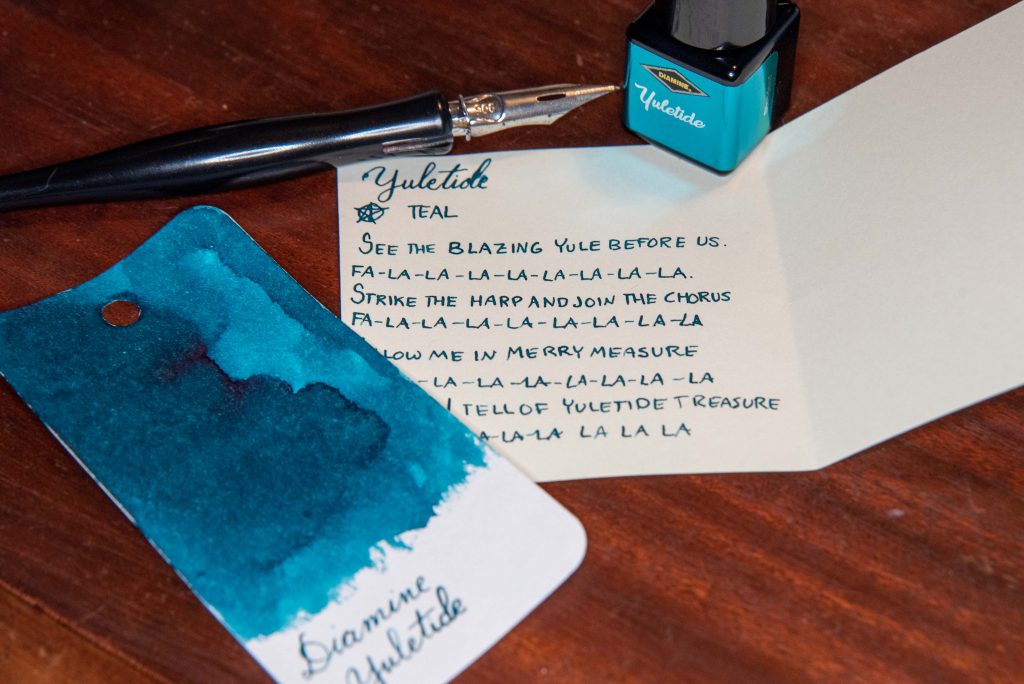 DIAMINE
Yuletide
Yuletide
TEAL
SEE THE BLAZING YULE BEFORE US.
FA-LA-LA-LA-LA-LA-LA-LA-LA.
STRIKE THE HARP AND JOIN THE CHORUS
FA-LA-LA-LA-LA-LA-LA-LA-LA
LOW ME IN MERRY MEASURE
-LA-LA-LA-LA-LA-LA-LA
TELL OF YULETIDE TREASURE
A-LA-LA LA LA LA
Diamine
Yuletide